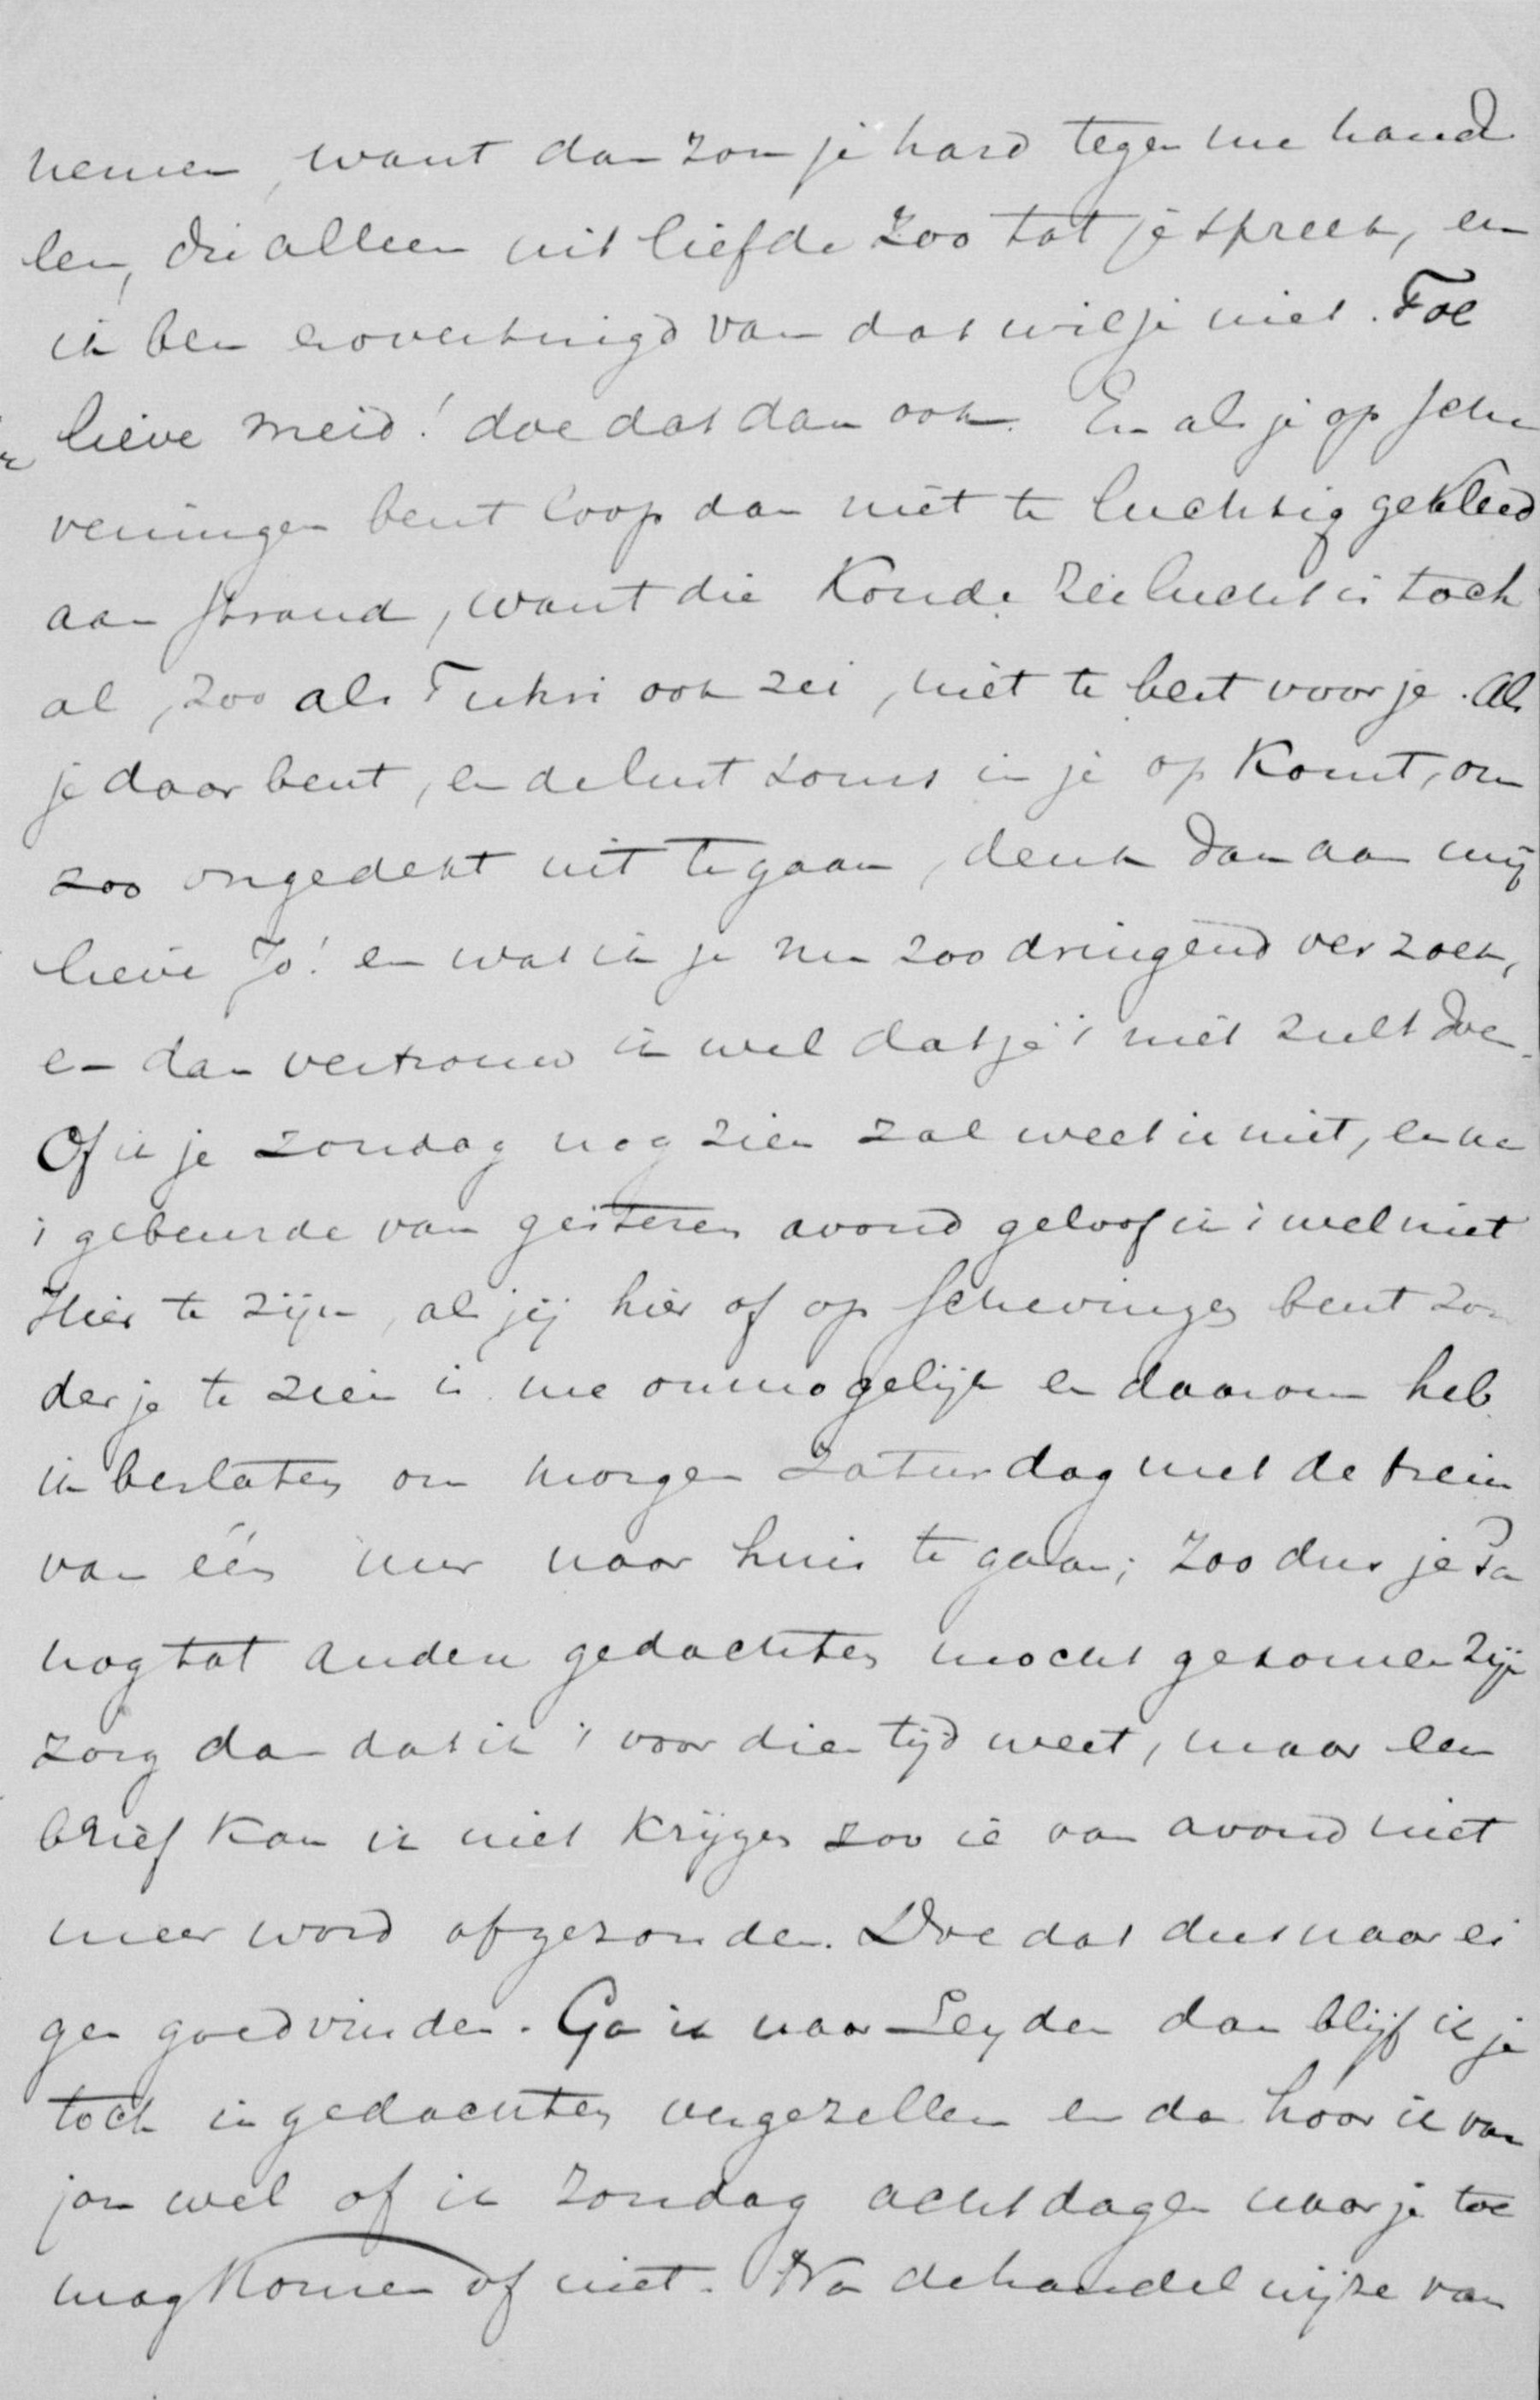 nemen, want dan zou je hard tegen me hand
len, die alleen uit liefde zoo tot je spreek, en
ik ben er overtuigd van dat wil je niet. Toe
lieve meid! doe dat dan ook. En als je op Sche
veningen bent loop dan niet te luchtig gekleed
aan strand, want die koude zeelucht is toch
al, zoo als ook zei, niet te best voor je. Als
je daar bent, en de lust soms in je op komt, om
zoo ongedekt uit te gaan, denk dan aan mij
lieve Jo! en wat ik je nu zoo dringend verzoek,
en dan vertrouw ik wel dat je 't niet zult doen.
Of ik je zondag nog zien zal weet ik niet, en na
't gebeurde van gisteren avond geloof ik 't wel niet
Hier te zijn, als jij hier of op Schevingen bent zon
der je te zien is me onmogelijk en daarom heb
ik besloten om morgen Zaturdag met de trein
van één uur naar huis te gaan; zoo dus je Pa
nog tot andere gedachten mocht gekomen zijn
zorg dan dat ik 't voor dien tijd weet, maar een
brief kan ik niet krijgen zoo ie van avond niet
meer word afgezonden. Doe dat dus naar ei
gen goedvinden. Ga ik naar Leyden dan blijf ik je
toch in gedachten vergezellen en dan hoor ik van
jou wel of ik Zondag acht dagen naar je toe
mag komen of niet. Na de handelwijze van